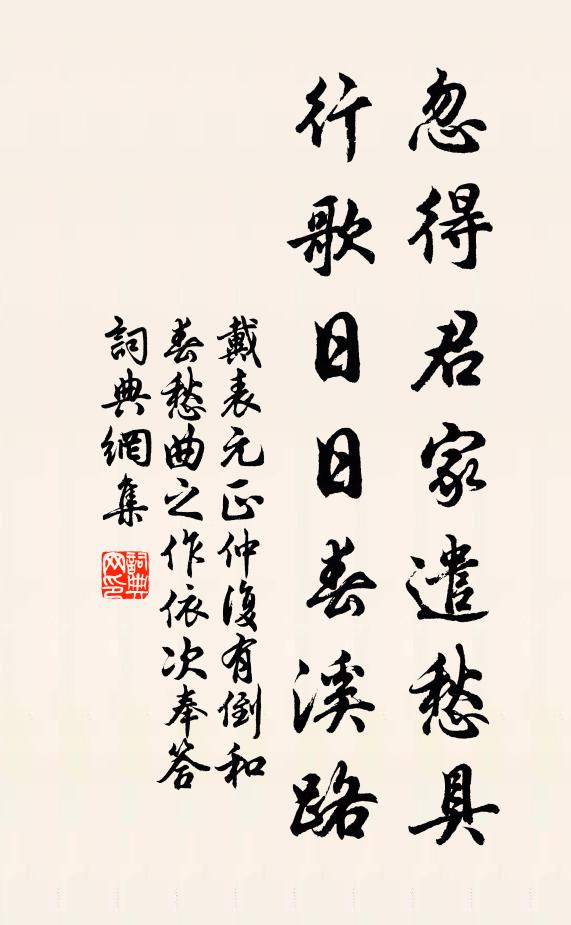 忽得君家遣愁具
行歌日日春溪路
戴表元正仲復有倒和
春愁曲之作依次奉答
詞典網集
詞典
网印